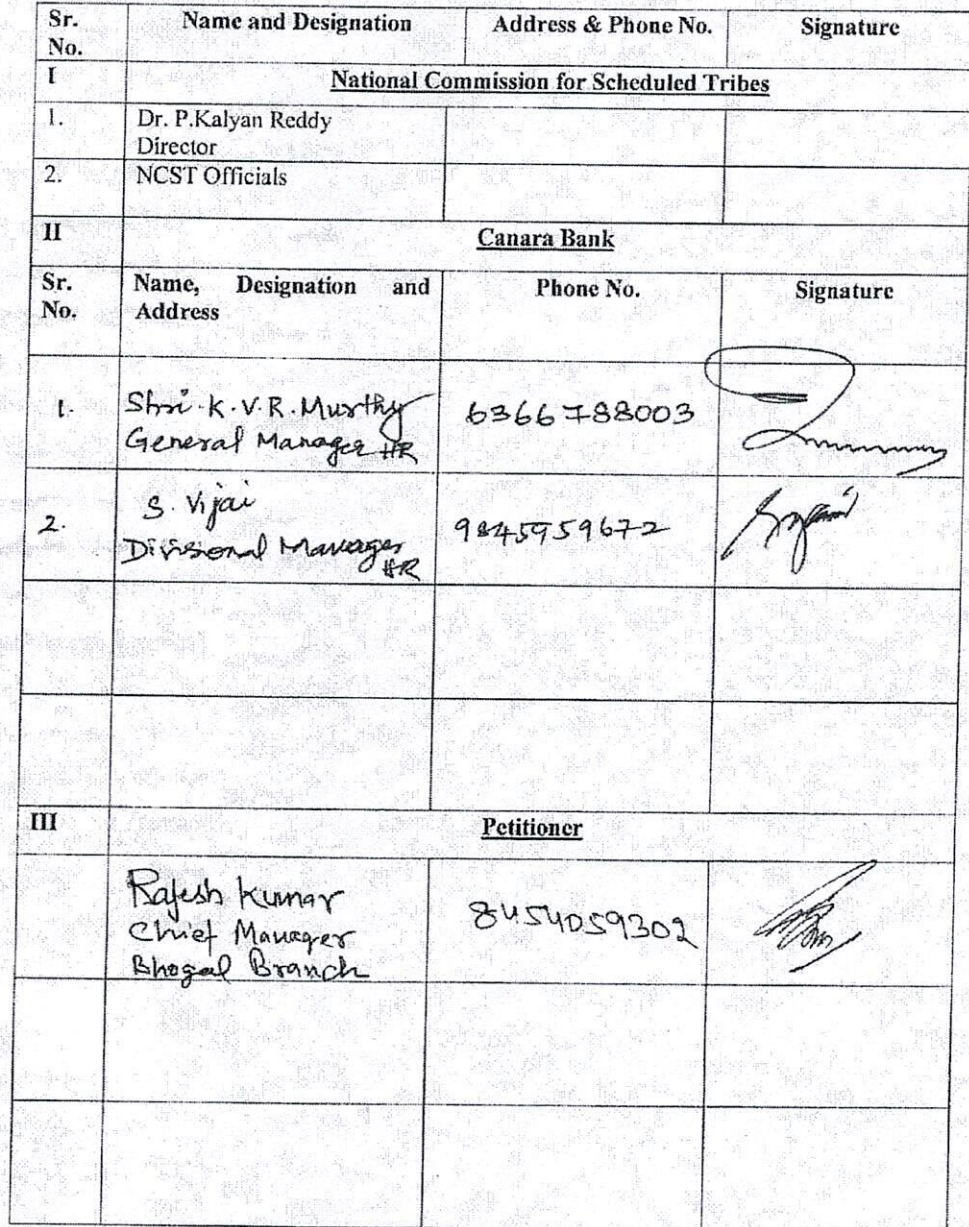 Sr. No. Name and Designation Address & Phone No. Signature
I National Commission for Scheduled Tribes
1. Dr. P.Kalyan Reddy
Director
2. NCST Officials
II Canara Bank
Sr. No. Name, Designation and Address Phone No. Signature
1. Shri. K.V.R. Murthy 6366788003
General Manager HR
2. S. Vijai 9845959672
Divisional Manager HR
III Petitioner
Rajesh Kumar 8454059302
Chief Manager
Bhogal Branch